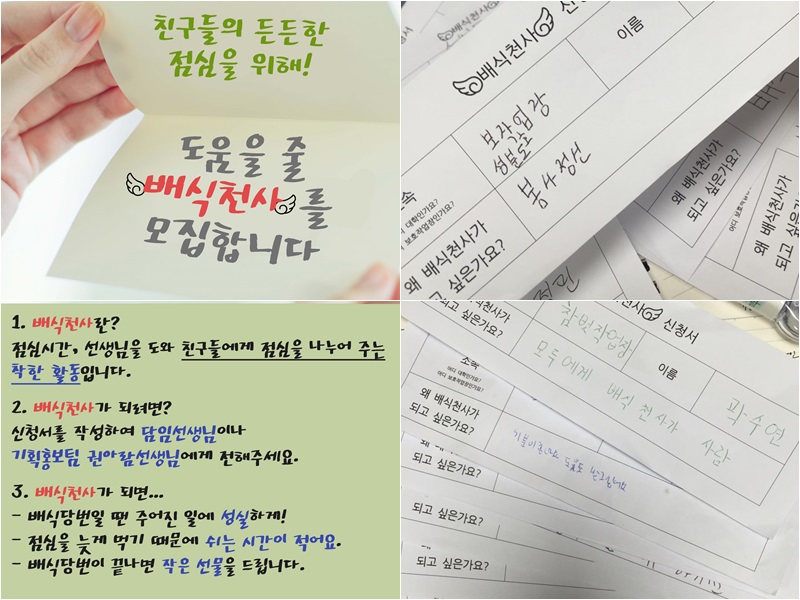 친구들의 든든한
점심을 위해!
도움을 줄
배식천사를
모집합니다
배식천사 신청서
이름
보작업장
성분도
봉사정신
소속
어디 대학인가요?
어디 보호작업장인가요?
왜 배식천사가
되고 싶은가요?
왜 배식천사가
되고 싶은가요?
왜 배식천사가
되고 싶은가요?
1. 배식천사란?
점심시간, 선생님을 도와 친구들에게 점심을 나누어 주는
착한 활동입니다.
2. 배식천사가 되려면?
신청서를 작성하여 담임선생님이나
기획홍보팀 권아람선생님에게 전해주세요.
3. 배식천사가 되면...
- 배식당번일 땐 주어진 일에 성실하게!
- 점심을 늦게 먹기 때문에 쉬는 시간이 적어요.
- 배식당번이 끝나면 작은 선물을 드립니다.
왜 배식천사가
되고 싶은가요?
배식천사 신청서
참벗작업장
이름
곽수연
모두에게 배식 천사가
사람
소속
어디 대학인가요?
어디 보호작업장인가요?
왜 배식천사가
되고 싶은가요?
되고 싶은가요?
되고 싶은가요?
되고 싶은가요?